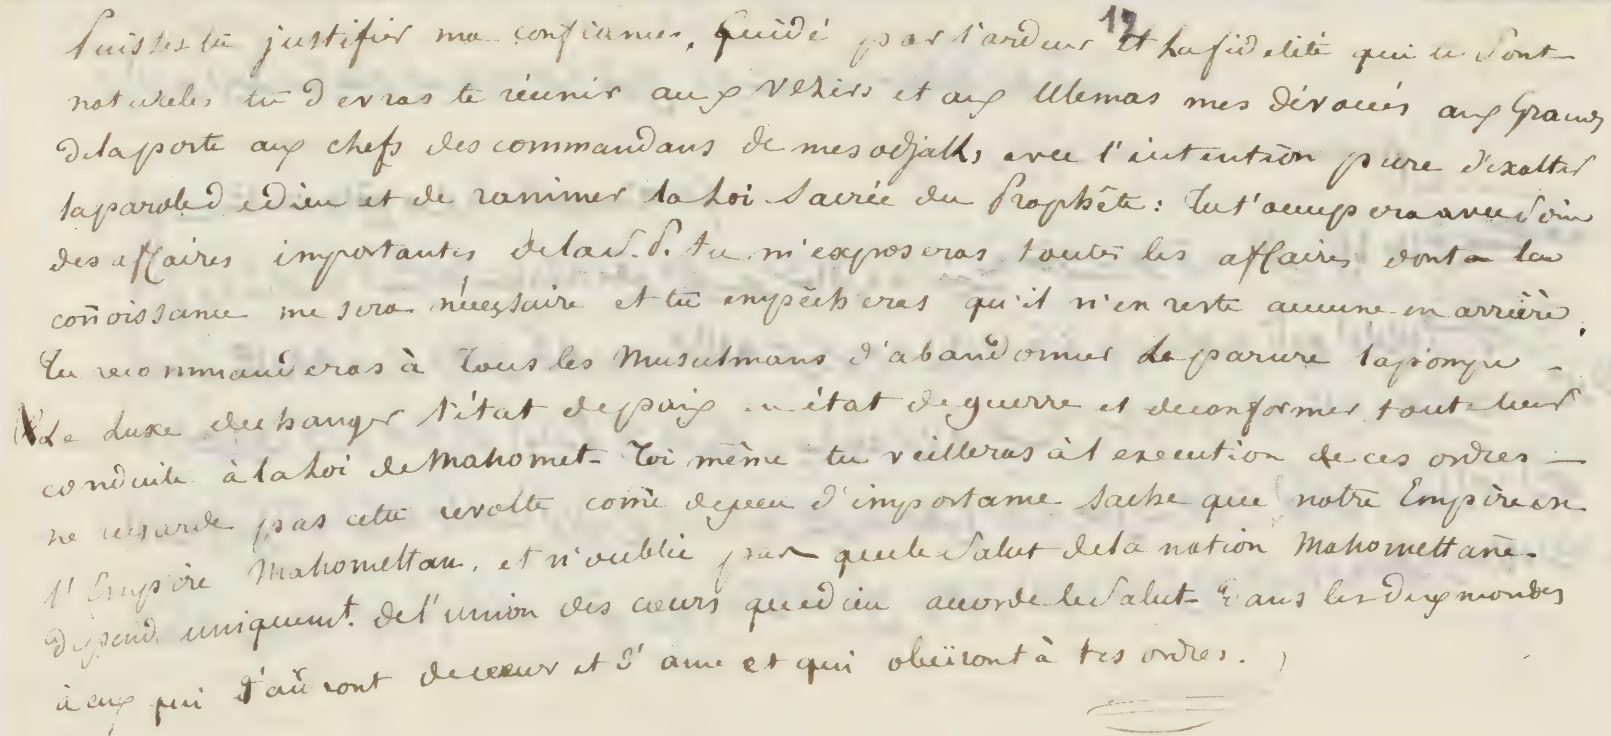 12
Puisses tu justifier ma confiance. Guidé par l'ardeur et La fidelité qui te Sont
naturelles tu devras te réunir aux Vezirs et aux Ulemas mes dévoués aux Grands
de la porte aux chefs des commandans de mes odjaks, avec l'intention pure d'exalter
la parole de dieu et de ranimer la Loi Sacrée du Prophête : Tu t'occupera avec Soin
des affaires importantes de la S. P. tu m'exposeras toutes les affaires dont la
coñoissance me sera nécessaire et tu empêcheras qu'il n'en reste aucune en arrière.
Tu recommanderas à Tous les Musulmans d'abandonner La parure la pompe
Le Luxe de changer l'état de paix en état de guerre et de conformer toute leur
conduite à la Loi de Mahomet - Toi même tu veilleras à l'execution de ces ordres —
ne regarde pas cette revolte come de peu d'importance Sache que notre Empire est
l'Empire Mahomettan, et n'oublie pas que le Salut de la nation Mahomettane
depend uniquemt. de l'union des cœurs que dieu accorde le Salut - Dans les deux mondes
à ceux qui t'aideront de cœur et d'ame et qui obeïront à tes ordres.